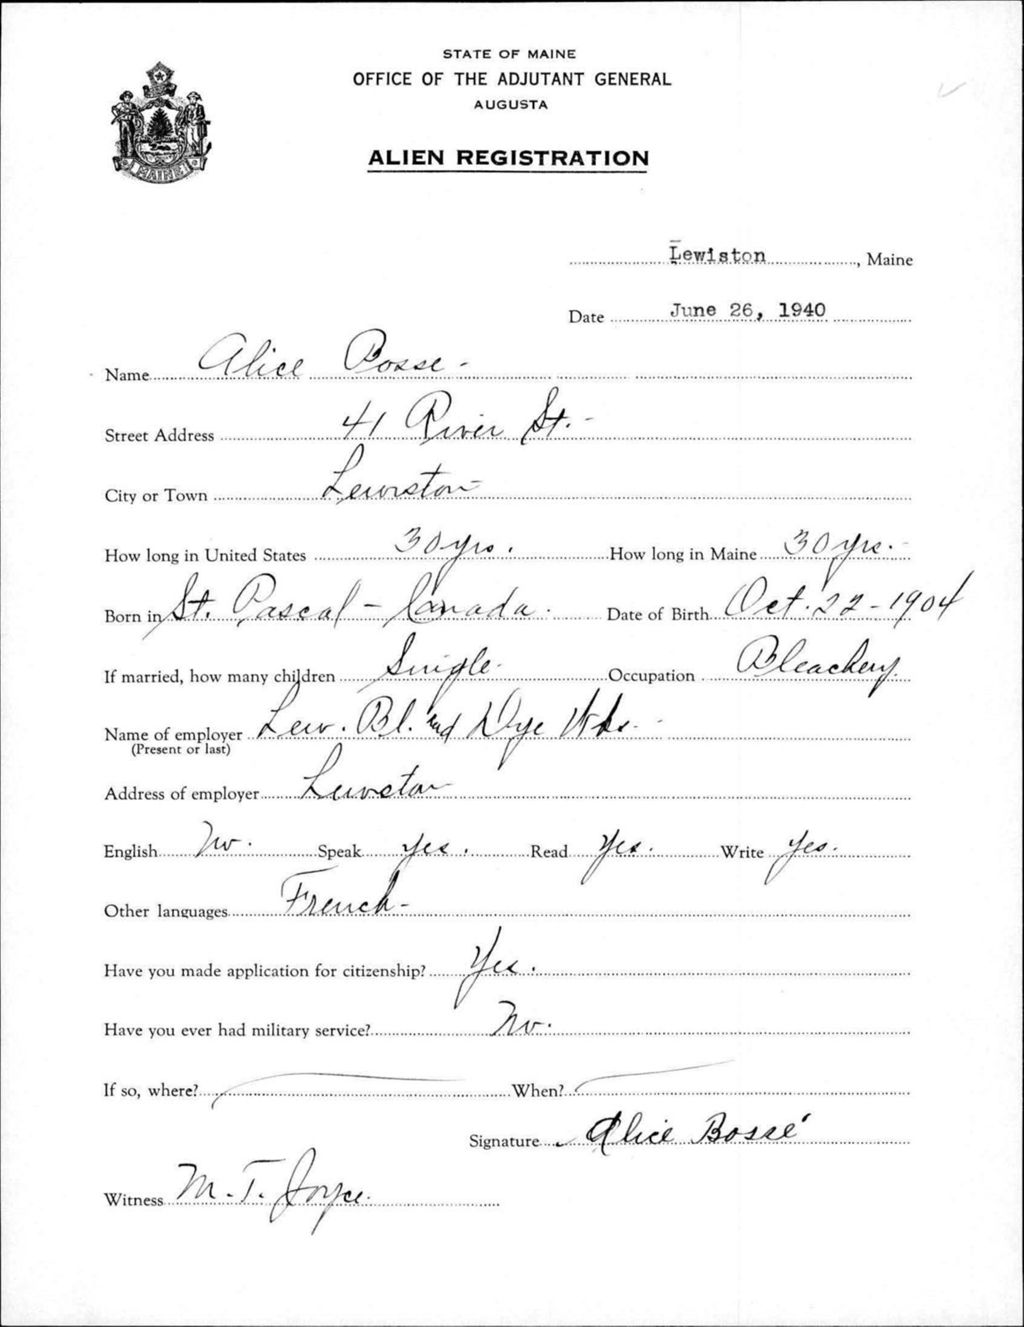 STATE OF MAINE
OFFICE OF THE ADJUTANT GENERAL
AUGUSTA
ALIEN REGISTRATION
MAINE
Lewiston, Maine
Date June 26, 1940
Name Alice Bosse -
Street Address 41 River St. -
City or Town Lewiston
How long in United States 30 yrs. How long in Maine 30 yrs. -
Born in St. Pascal - Canada. Date of Birth Oct. 22 - 1904
If married, how many children Single. Occupation Bleachery.
Name of employer Lew. Bl. and Dye Wks. -
(Present or last)
Address of employer Lewiston
English No. Speak yes. Read Yes. Write Yes.
Other languages French -
Have you made application for citizenship? Yes.
Have you ever had military service? No.
If so, where? When?
Signature Alice Bossé
Witness M. T. Joyce.